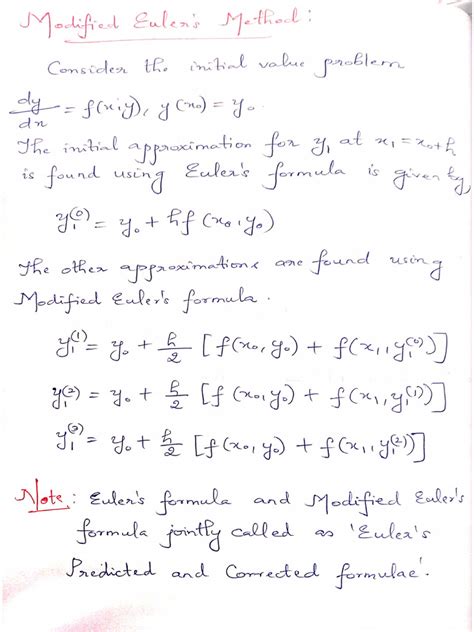 Modified Euler's Method:
Consider the initial value problem
dy/dx = f(x,y), y(x₀) = y₀.
The initial approximation for y₁ at x₁ = x₀+h
is found using Euler's formula is given by,
y₁⁽⁰⁾ = y₀ + hf(x₀, y₀)
The other approximations are found using
Modified Euler's formula.
y₁⁽¹⁾ = y₀ + h/2 [f(x₀, y₀) + f(x₁, y₁⁽⁰⁾)]
y₁⁽²⁾ = y₀ + h/2 [f(x₀, y₀) + f(x₁, y₁⁽¹⁾)]
y₁⁽³⁾ = y₀ + h/2 [f(x₀, y₀) + f(x₁, y₁⁽²⁾)]
Note: Euler's formula and Modified Euler's
formula jointly called as 'Euler's
Predicted and Corrected formulae'.